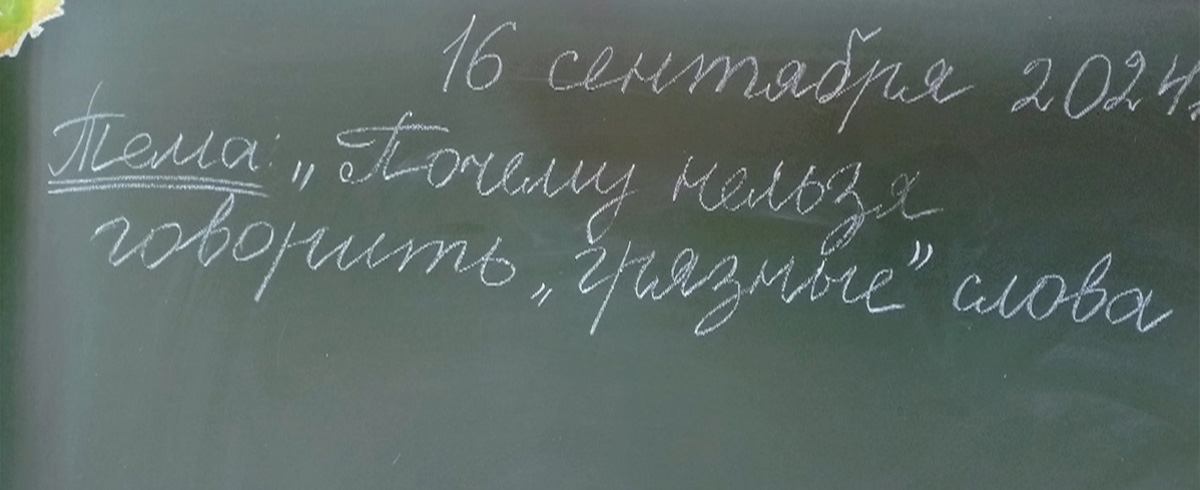 16 сентября 2024
Тема: „Почему нельзя
говорить „грязные” слова